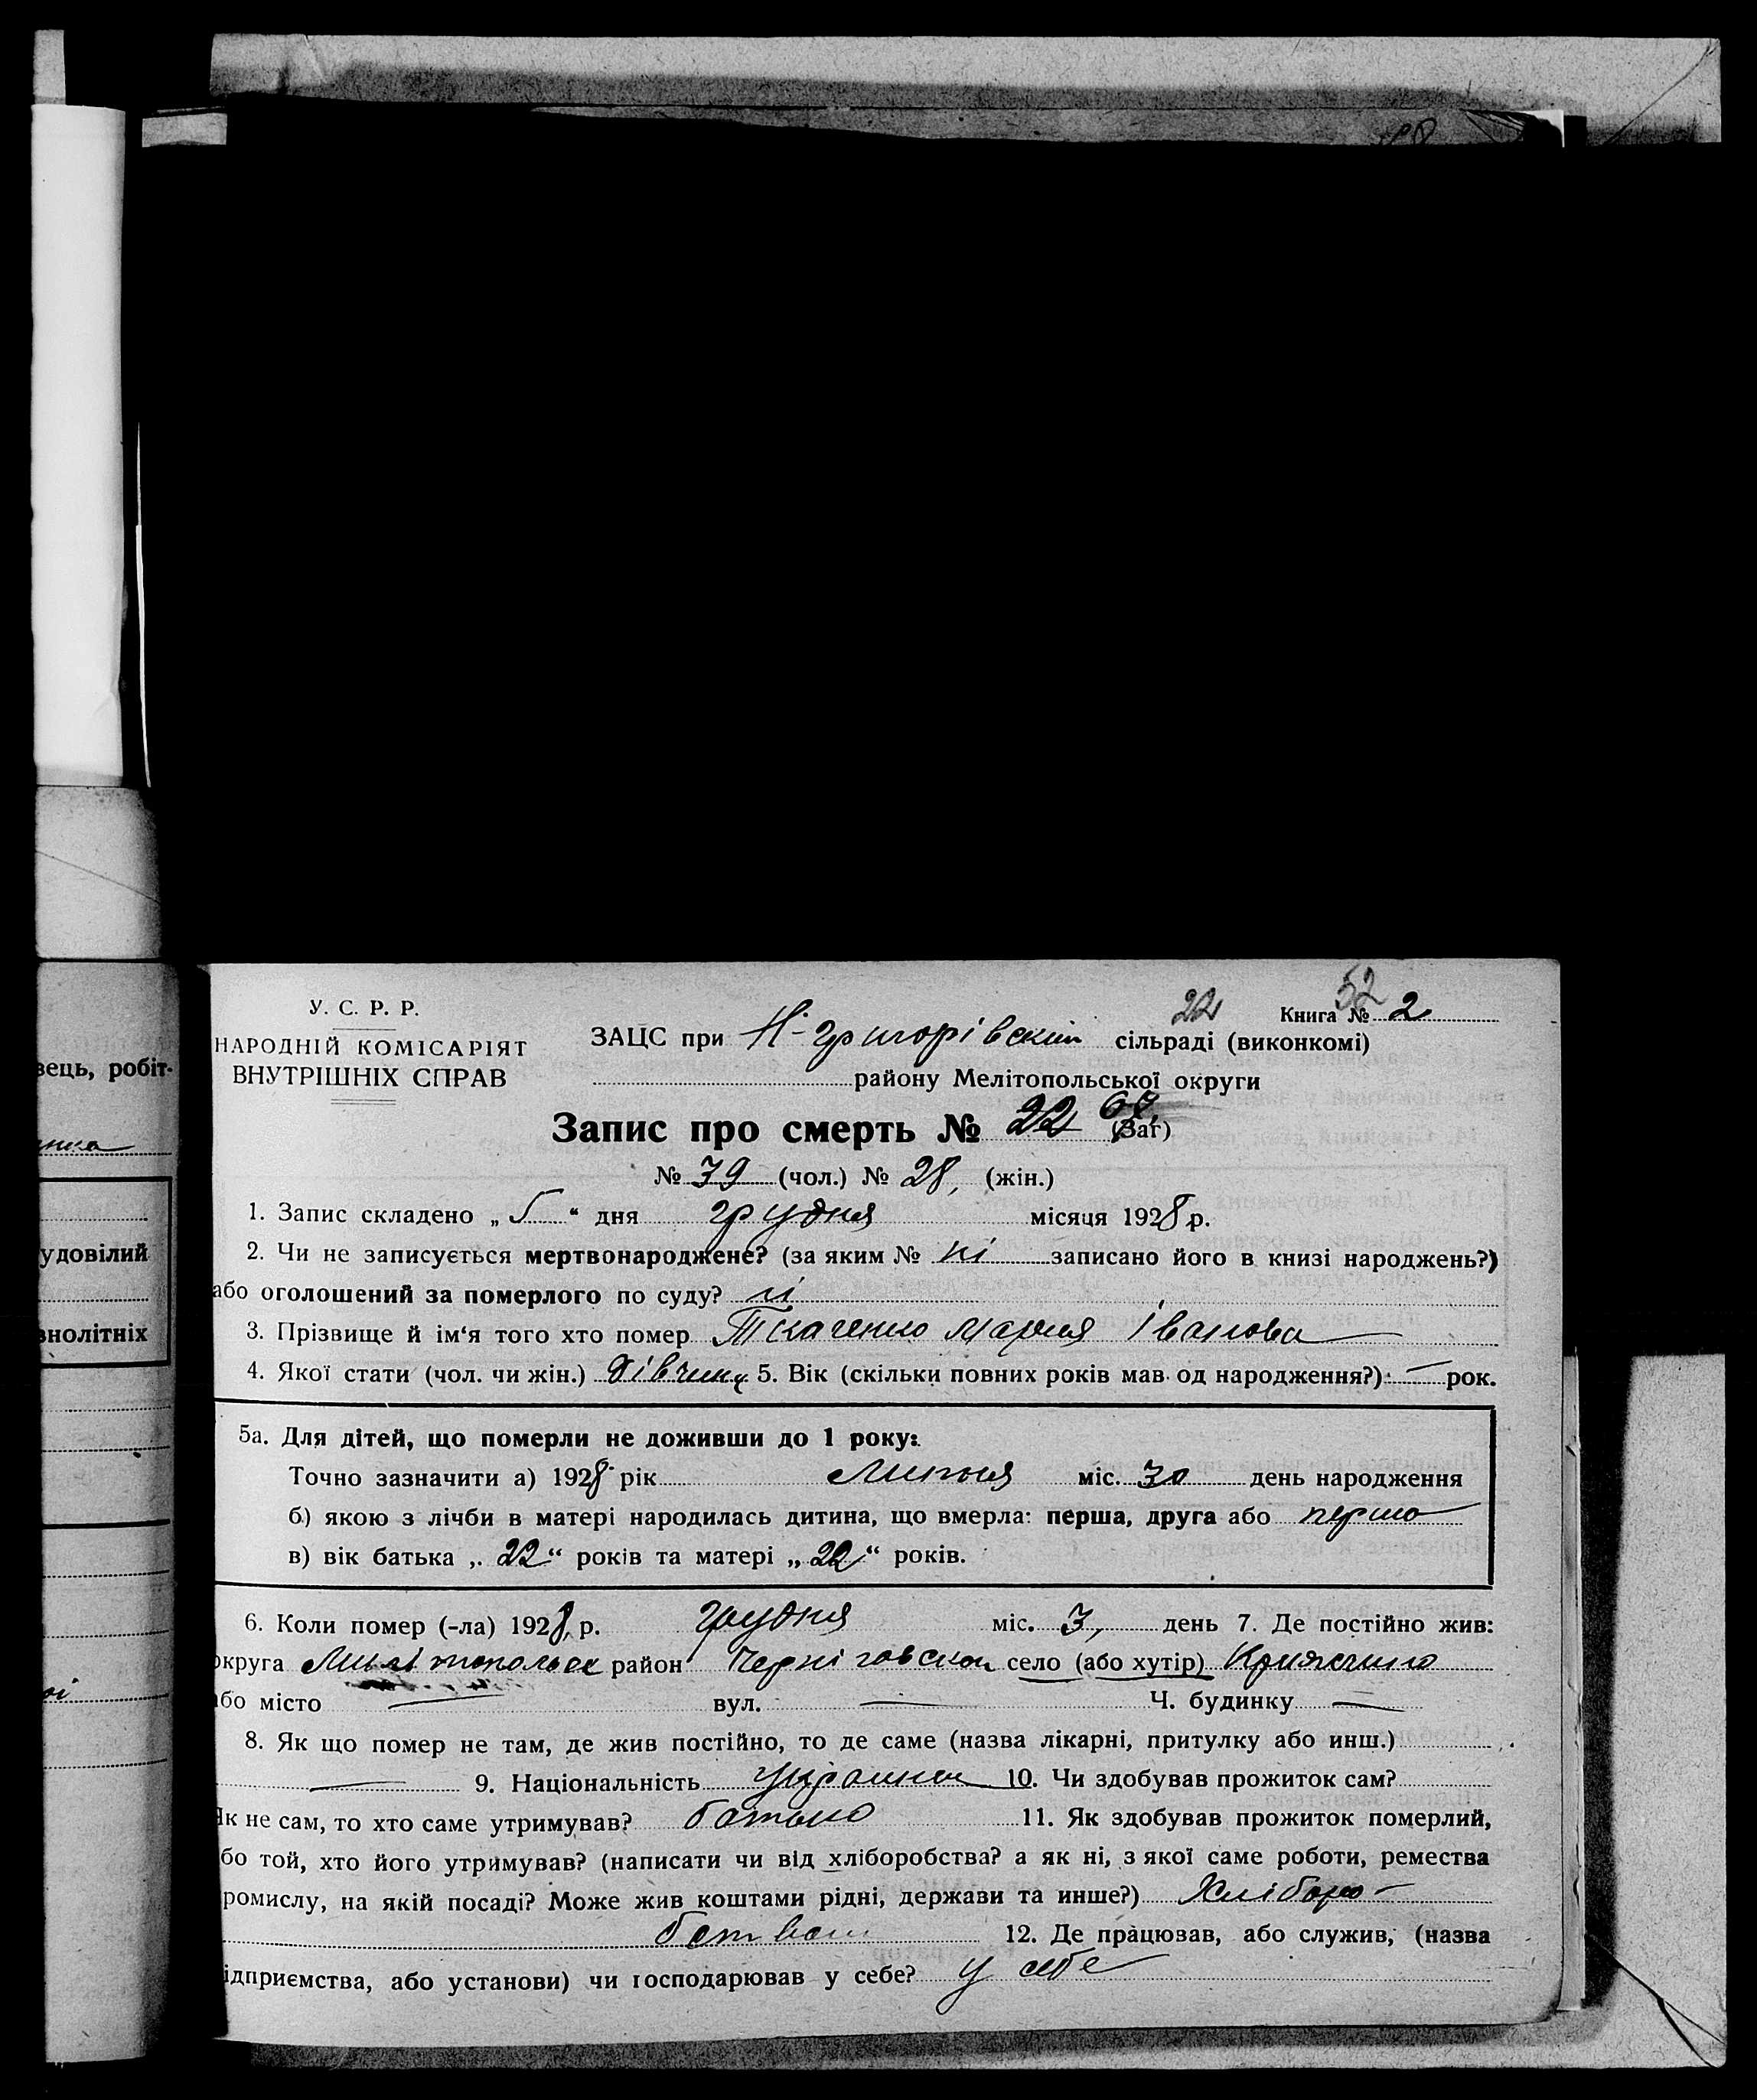 вець, робіт-
нка
удовілий
внолітніх
ої
52
У. С. Р. Р.
22
Книга № 2
НАРОДНІЙ КОМІСАРІЯТ
ВНУТРІШНІХ СПРАВ
ЗАЦС при Н-Григорівскій сільраді (виконкомі)
району Мелітопольської округи
Запис про смерть № 22 67, (Заг)
№ 39 (чол.) № 28, (жін.)
1. Запис складено „ 5 “ дня грудня місяця 1928 р.
2. Чи не записується мертвонароджене? (за яким № ні записано його в книзі народжень?)
або оголошений за померлого по суду? ні
3. Прізвище й ім‘я того хто помер Ткаченко Мария Іванова
4. Якої стати (чол. чи жін.) дівчина 5. Вік (скільки повних років мав од народження?) — рок.
5а. Для дітей, що померли не доживши до 1 року:
Точно зазначити а) 1928 рік Липня міс. 30 день народження
б) якою з лічби в матері народилась дитина, що вмерла: перша, друга або перша
в) вік батька „ 22 “ років та матері „ 22 “ років.
6. Коли помер (-ла) 1928 р. грудня міс. 3, день 7. Де постійно жив:
округа район Черніговской село (або хутір)
або місто — вул. — Ч. будинку —
8. Як що помер не там, де жив постійно, то де саме (назва лікарні, притулку або инш.)
— 9. Національність украинка 10. Чи здобував прожиток сам?
Як не сам, то хто саме утримував? батько 11. Як здобував прожиток померлий,
бо той, хто його утримував? (написати чи від хліборобства? а як ні, з якої саме роботи, ремества
ромислу, на якій посаді? Може жив коштами рідні, держави та инше?) Хліборо-
бством 12. Де працював, або служив, (назва
ідприємства, або установи) чи господарював у себе? у себе